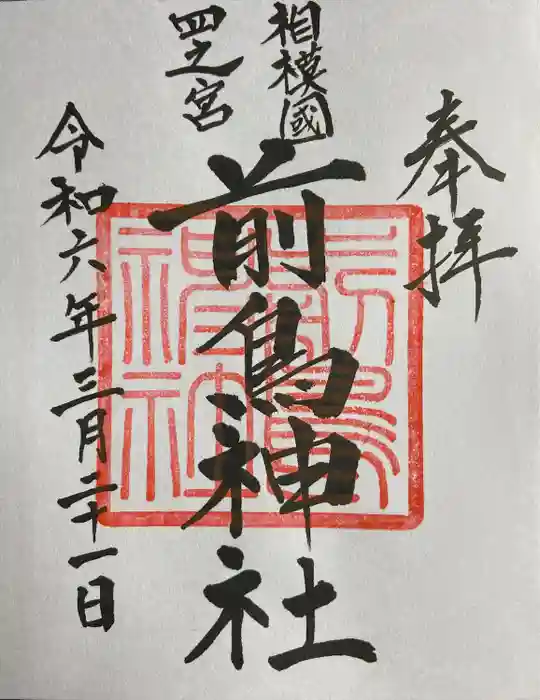 奉拝
相模國
四之宮
前鳥神社
令和六年三月二十一日